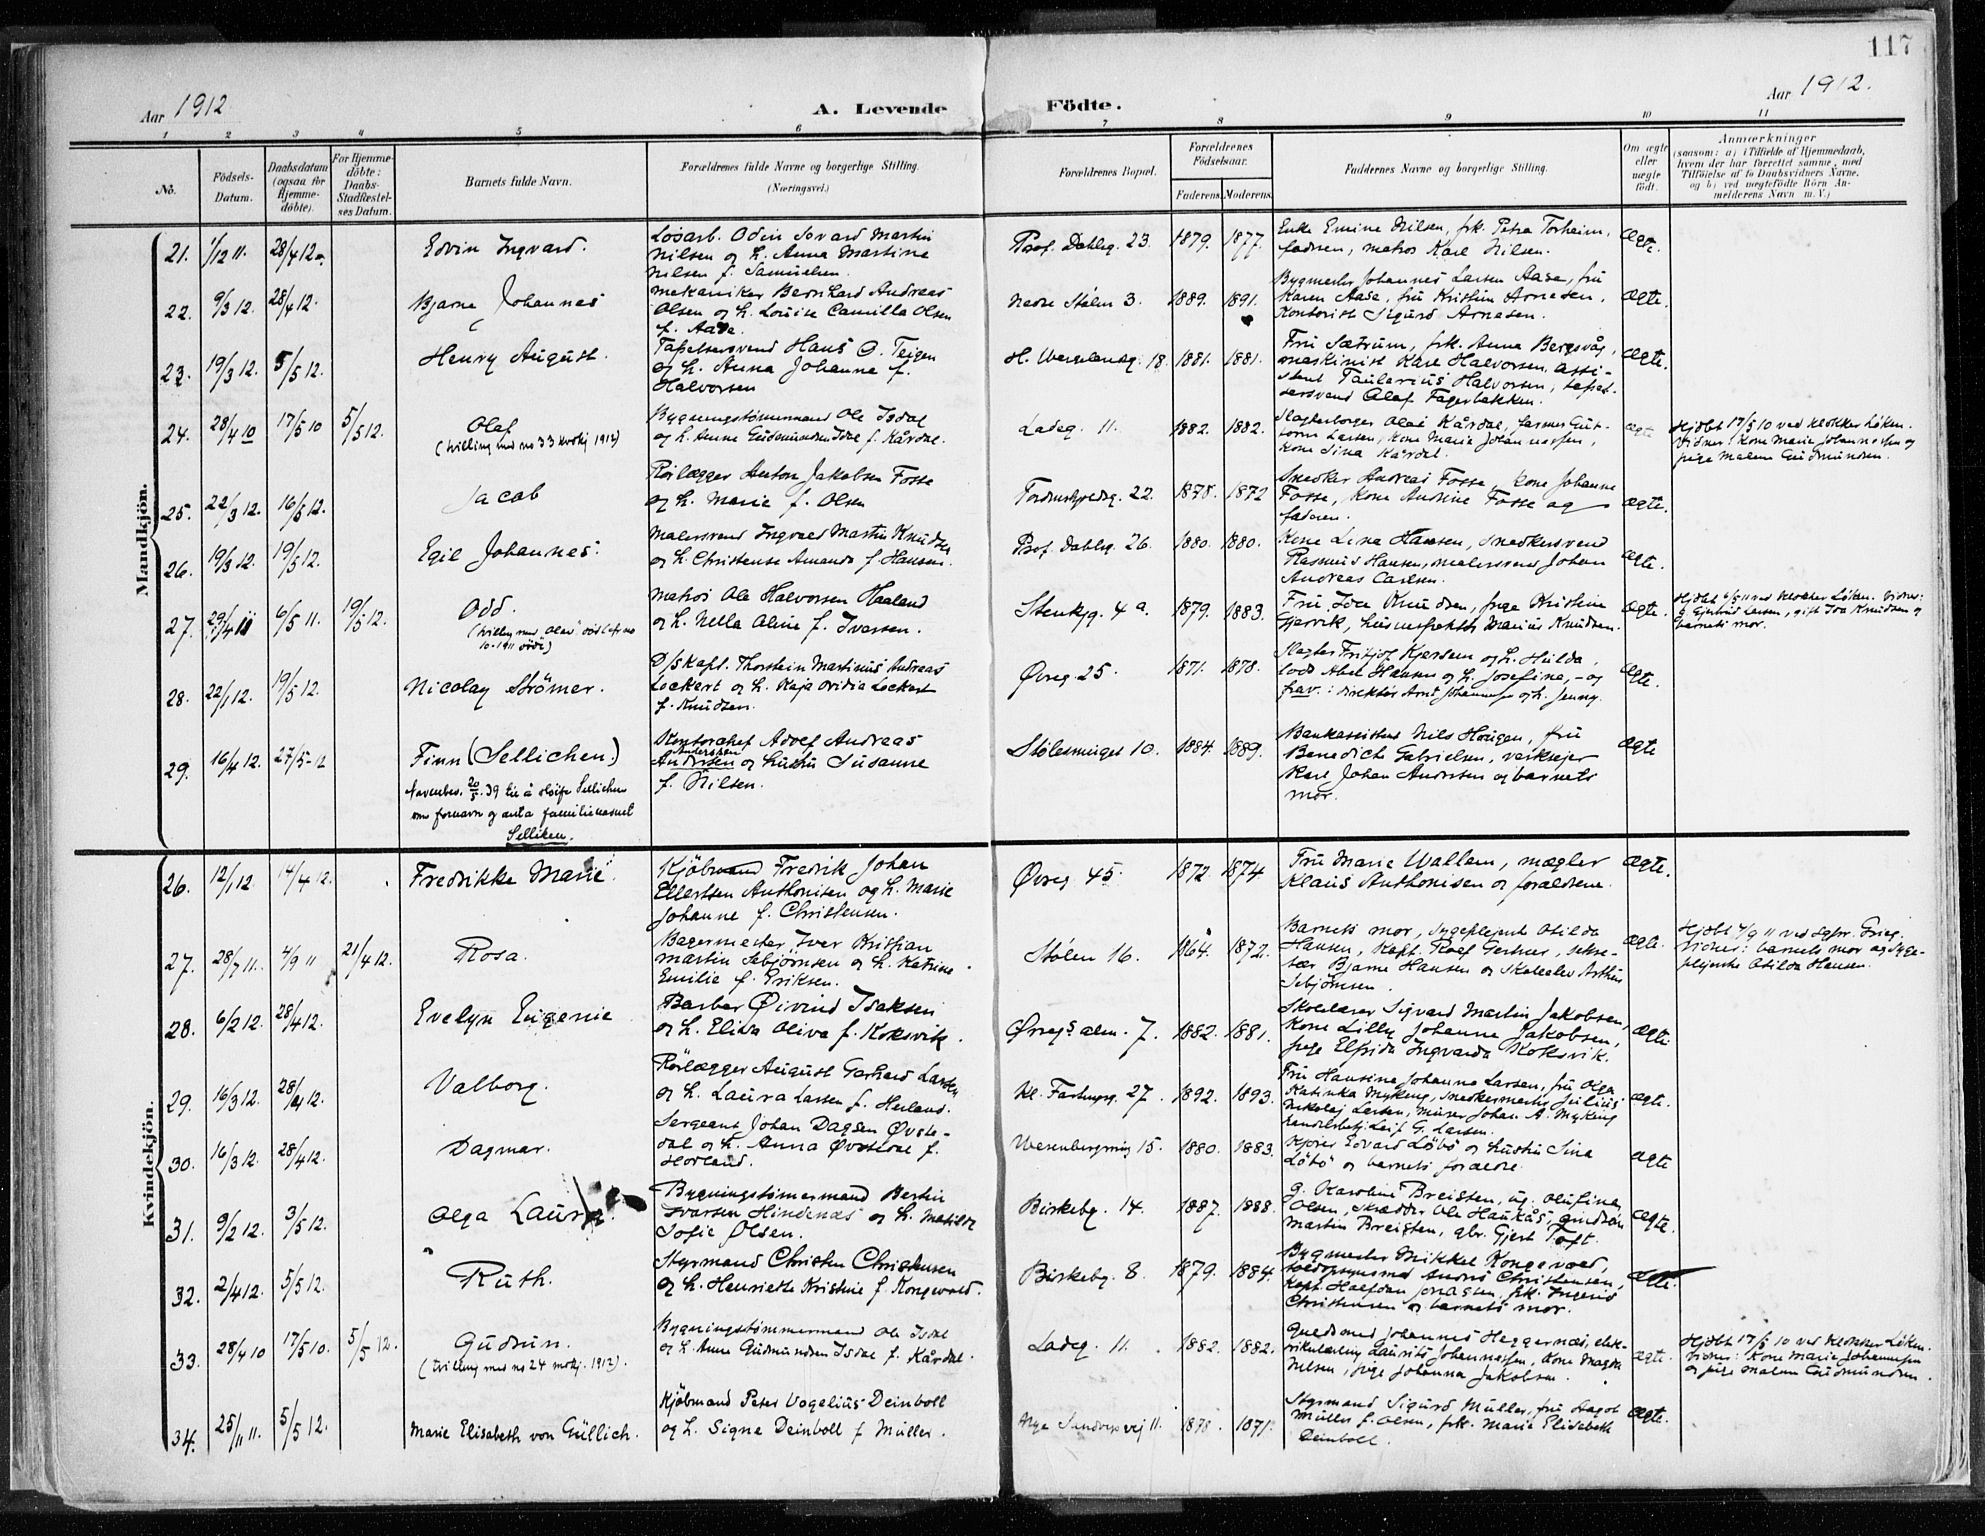 117
Aar 1912
A. Levende Födte.
Aar 1912.
1 2 3 4 5 6 7 8 9 10 11
No.
Födsels-Datum.
Daabsdatum (ogsaa for Hjemme-döbte).
For Hjemme-döbte: Daabs-Stadfæstel-ses Datum.
Barnets fulde Navn.
Forældrenes fulde Navne og borgerlige Stilling.
(Næringsvei.)
Forældrenes Bopæl.
Forældrenes Födselsaar.
Faderens. Moderens.
Faddernes Navne og borgerlige Stilling.
Om ægte eller uægte födt.
Anmærkninger
(saasom: a) i Tilfælde af Hjemmedaab, hvem der har forrettet samme, med Tilföielse af to Daabsvidners Navne, og b) ved uægtefödte Börn An-melderens Navn m. V.)
Mandkjön.
21. 1/12 11. 28/4 12. Edvin Ingvard. Løsarb. Odin Sevard Martin
Nilsen og h. Anna Martine
Nilsen f. Samuelsen.
Prof. Dahlsg. 23. 1879. 1877. Enke Emine Nilsen, frk. Petra Torheim,
faderen, matros Karl Nilsen. Ægte.
22. 9/3 12. 28/4 12. Bjarne Johannes Mekaniker Bernhard Andreas
Olsen og h. Louise Camilla Olsen
f. Aase.
Nedre Stølen 3. 1889. 1891. Bygmester Johannes Larsen Aase, fru
Karen Aase, fru Kristine Arnesen,
Kontorist Sigurd Arnesen. Ægte.
23. 19/3 12. 5/5 12. Henry August. Tapetsersvend Hans O. Teigen
og h. Anna Johanne f.
Halvorsen
H. Wergelandsg. 18. 1881. 1881. Fru Sætrum, frk. Anna Bergsvåg,
maskinist Kare Halvorsen, assi-
stent Halvorsen, tapet-
sersvend Olaf Fagerbakken. Ægte.
24. 28/4 10 17/5 10 5/5 12. Olaf
(tvilling med no 33 kvdkj 1912)
Bygningstømmermand Ole Isdal
og h. Anne Gudmundsen Isdal f. Kårdal.
Ladeg. 11. 1882. 1882. Olai Kårdal, Gut-
torm Larsen, kone Marie Johannessen,
kone Sina Kårdal. ægte
Hjdbt 17/5 10 ved klokker Løken.
Vidner: Kone Marie Johannessen og
pige Malene Gudmundsen.
25. 22/3 12. 16/5 12. Jacob Rørlægger Anton Jakobsen Fosse
og h. Marie f. Olsen
Tordenskjoldsg. 22. 1878. 1872 Snedker Andreas Fosse, kone Johanne
Fosse, kone Andrine Fosse og
faderen. ægte.
26. 19/3 12. 19/5 12. Egil Johannes. Malersvend Ingvald Martin Knudsen
og h. Christense Amanda f. Hansen.
Prof. Dahlsg. 26. 1880. 1880. Kone Lina Hansen, snedkersvend
Rasmus Hansen, malersvend Johan
Andreas Carlsen. ægte.
27. 29/4 11 6/5 11. 19/5 12. Odd.
Matros Ole Halvorsen Haaland
og h. Nella Oline f. Iversen.
Stenkjg. 4 a. 1879. 1883. Fru Ida Knudsen, pige Kristine
Gjervik, Marius Knudsen. Ægte.
Hjdbt 6/5 11 ved klokker Løken. Vidner:
g. Gjertrud Larsen, gift Ida Knudsen og
barnets mor.
28. 22/1 12. 19/5 12. Nicolay Strömer. D/skapt. Thorstein Martinus Andreas
Lockert og h. Kaja Ovidia Lockert
f. Knudsen.
Øvreg. 25. 1871. 1878. Slagter Fritjof Kjersem og h. Hulda,
lods Abel Hansen og h. Josefine, - og
frav.: direktør Arnt Johannesen og h. Jenny. ægte.
29. 16/4 12. 27/5-12 Finn (Sellichen.)
Navnebev. 20/5.39 til å sløife Sellichen
som fornavn og anta familienavnet
Selliken.
Kontorchef Adolf Andreas
Anderssen
Andersen og hustru Susanne
f. Nilsen.
Stølesmuget 10. 1884. 1889. Bankassistent Nils Hougen, fru
Benedicte Gabrielsen, verkseier
Karl Johan Andersen og barnets
mor. ægte
Kvindekjön.
26. 12/1 12. 14/4 12. Fredrikke Marie. Kjöbmand Fredrik Johan
Ellertsen Anthonisen og h. Marie
Johanne f. Christensen.
Øvreg 45. 1872 1874. Fru Marie Wallem, mægler
Klaus Anthonisen og forældrene. ægte.
27. 28/7 11. 4/9 11 21/4 12. Rosa. Bagermester Iver Kristian
Martin Sebjørnsen og h. Katrine
Emilie f. Eriksen.
Stølen 16. 1864. 1872. Barnets mor, sygeplejerske Otilda
Hansen, kapt. Rolf Gertner, sekre-
tær Bjarne Hansen og skoleelev Arthur
Sebjørnsen. ægte.
Hjdbt 4/9 11 ved sgpr. Grieg.
Vidner: barnets mor og syge-
plejerske Otilda Hansen.
28. 6/2 12. 28/4 12. Evelyn Eugenie Barber Øivind Isaksen
og h. Elisa Oliva f. Koksvik.
Øvregs alm. 7. 1882. 1881. Skolelærer Sigvard Martin Jakobsen,
Kone Lilly Johanne Jakobsen,
pige Elfrida Ingvarda Koksvik. ægte
29. 16/3 12. 28/4 12. Valborg. Rørlægger August Gerhard Larsen
og h. Laura Larsen f. Herland.
Kl. Fartveitsg. 27. 1892. 1893. Fru Hansine Johanne Larsen, fru Olga
Katinka Myking, snedkermester Julius
Nikolaj Larsen, murer Johan A. Myking
handelsbetj. Leif G. Larsen. ægte.
30. 16/3 12. 28/4 12. Dagmar. Sergeant Johan Dagsen Øvste-
dal og h. Anna Øvstedal f.
Horland.
Wesenbergsmug 15. 1880. 1883. Kjører Edvard Løbø og hustru Sina
Løbø og barnets forældre. ægte
31. 9/2 12. 3/5 12. Olga Laura. Bygningstømmermand Bertin
Ivarsen Hindenæs og h. Matilde
Sofie Olsen.
Birkebg. 14. 1887. 1888. g. Karoline Breisten, ug. Olufine
Olsen, skrædder Ole Haukås,
Martin Breisten, gbr. Gjert Toft. ægte.
32. 2/4 12. 5/5 12. Ruth. Styrmand Christen Christensen
og h. Henriette Kristine f. Kongevold.
Birkebg. 8. 1879. 1884. Bygmester Mikkel Kongevold,
toldopsynsmd Andreas Christensen,
kapt. Halfdan Jonassen, frk. Ingerid
Christensen og barnets mor. ægte.
33. 28/4 10 17/5 10. 5/5 12. Gudrun.
(tvilling med no 24 mdkj. 1912).
Bygningstømmermand Ole Isdal
og h. Anne Gudmundsen Isdal f. Kårdal.
Ladeg. 11. 1882. 1882. Guldsmed Johannes Heggernæs, elek-
trikerlærling Lauritz Johannessen, kone Magda
Nilsen, pige Johanna Jakobsen. ægte.
Hjdbt 17/5 10 ved klokker Løken.
Vidner: Kone Marie Johannessen
og pige Malene Gudmundsen.
34. 25/11 11. 5/5 12. Marie Elisabeth von Güllich. Kjöbmand Peter Vogelius Deinboll
og h. Signe Deinboll f Müller.
Nye Sandviksvej 11. 1878. 1871. Styrmand Sigurd Müller, fru Dagot
Müller f. Olsen, frk. Marie Elisabeth
Deinboll. ægte.